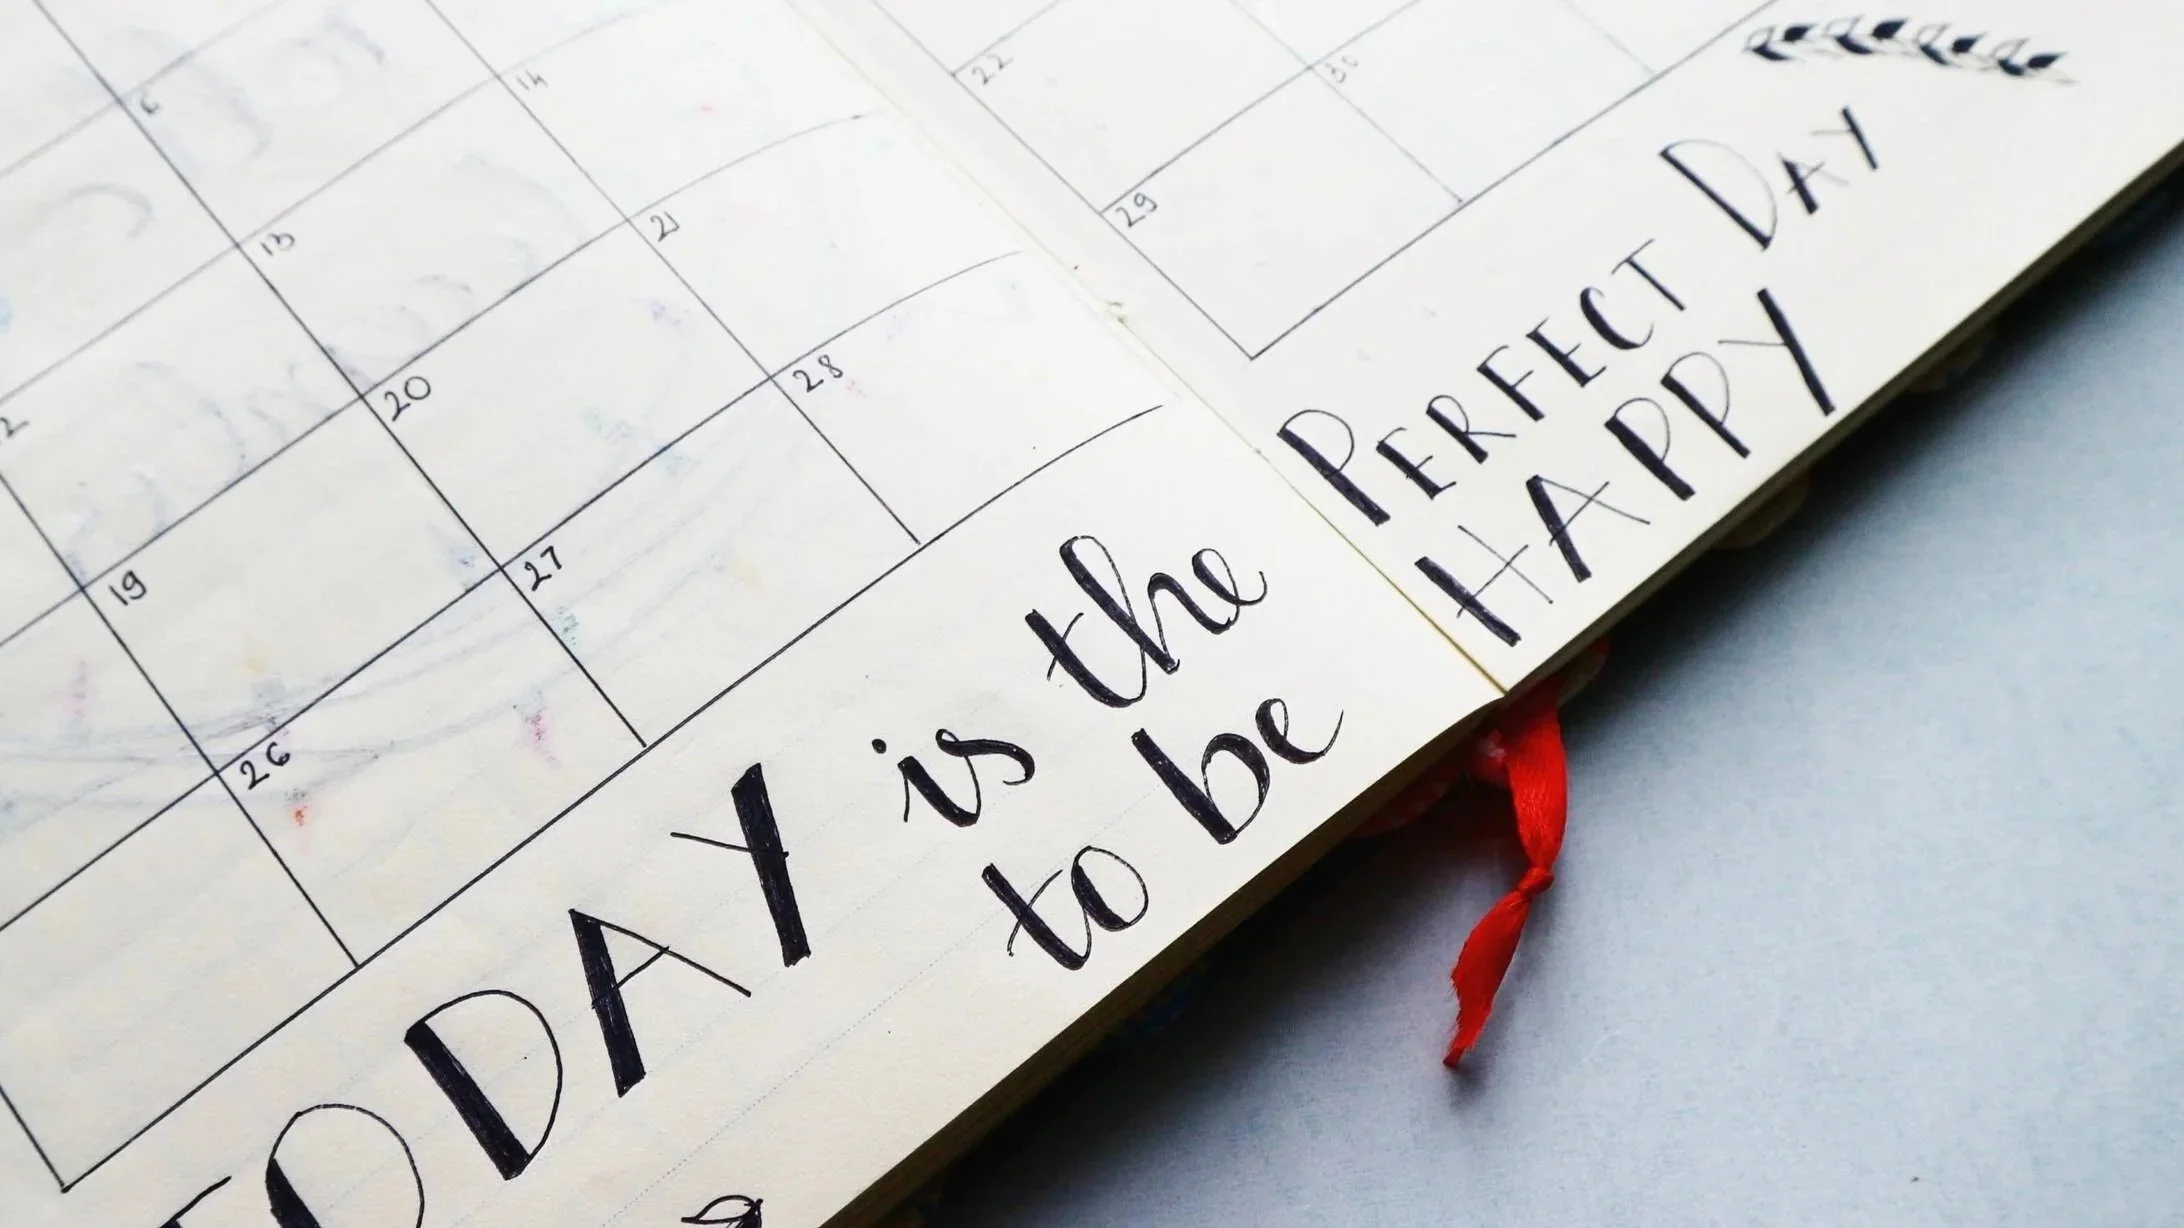 6
14
22
30
13
21
29
12
20
28
19
27
26
TODAY is the PERFECT DAY
to be HAPPY